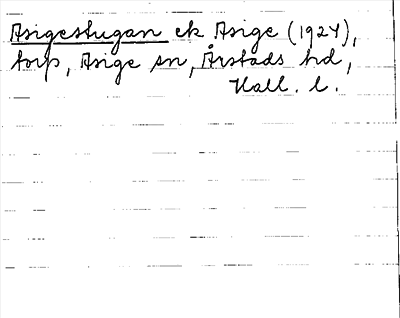 Asigestugan ek Asige (1924),
torp, Asige sn, Årstads hd,
Hall. l.